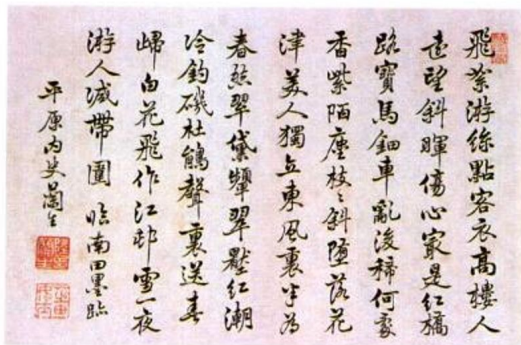 飛絮游絲點客衣高樓人
遠望斜暉傷心冣是紅橋
路寶馬鈿車亂後稀何處
香紫陌塵枝〻斜墮落花
津美人獨立東風裏半為
春怨翠黛顰翠壓紅潮
冷釣磯杜鵑聲裏送春
歸白花飛作江邨雪一夜
游人減帶圍 臨南田墨跡
平原內史蘭生